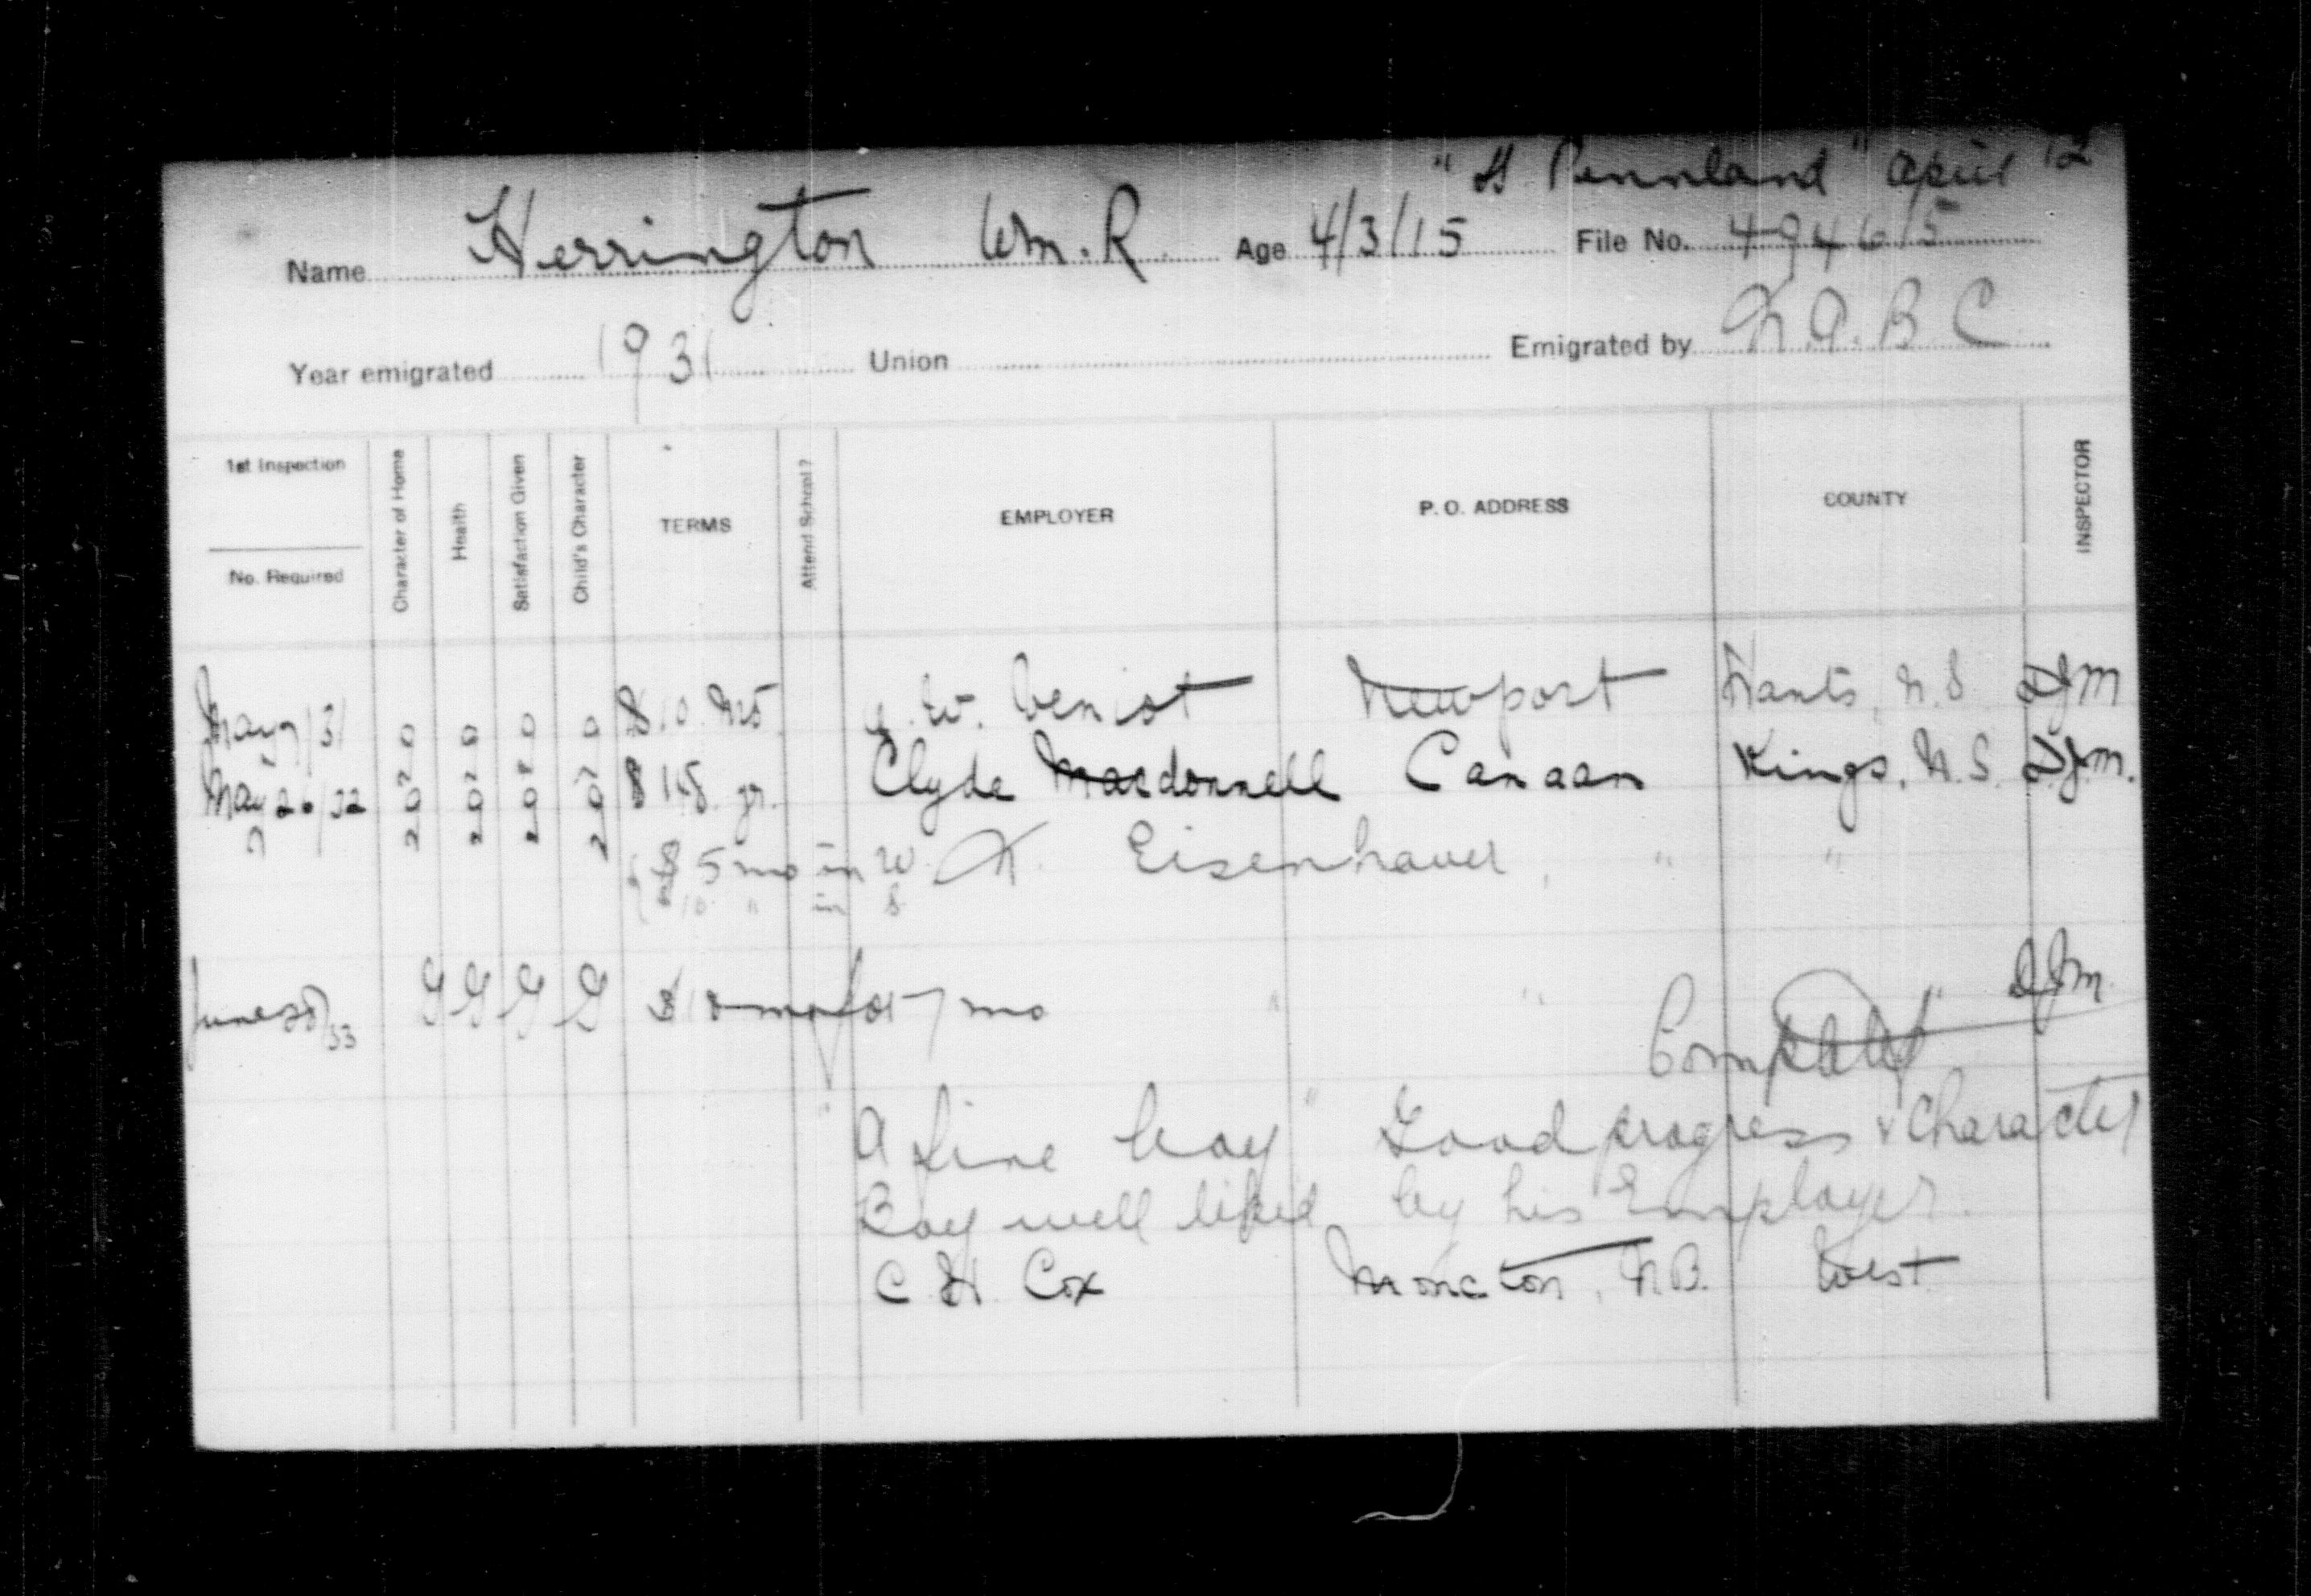 "SS Pennland" April 12
Name Herrington Wm. R. Age 4/3/15 File No. 494615
Year emigrated 1931 Union Emigrated by N.A.B.C.
1st Inspection
No. Required
Character of Home
Health
Satisfaction Given
Child's Character
TERMS
Attend School?
EMPLOYER
P. O. ADDRESS
COUNTY
INSPECTOR
May 31 $10. mo. W. Newport Hants, N.S. DJM
May 26/32 $ yr. Clyde Macdonnell Canaan Kings, N.S. D.J.M.
$ 5 mo in W. Eisenhauer, " "
10 " in S.
June 28/33 G G G G $10 mo for 7 mo " " " DJM
Complete
"A fine boy" Good progress & character
Boy well liked by his Employer.
C H Cox Moncton, N.B. West